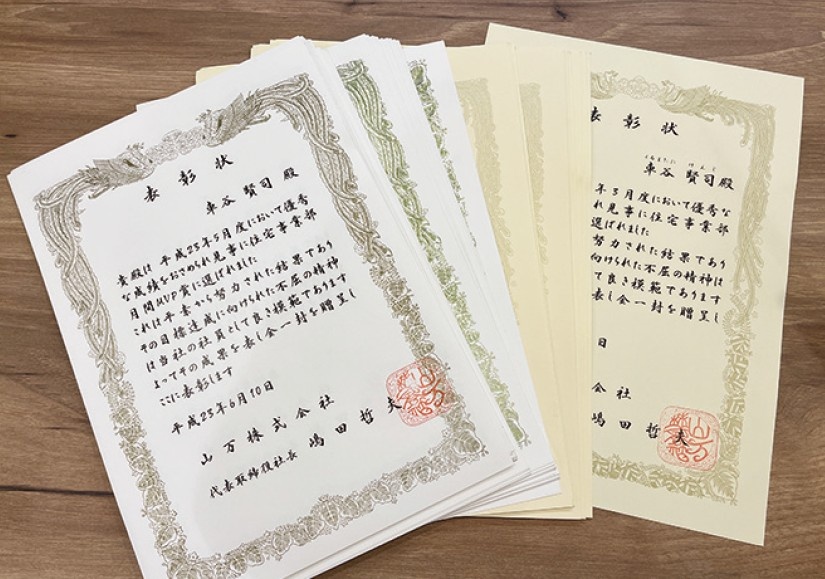 表彰状
車谷 賢司 殿
貴殿は平成25年5月度において優秀
な成績をおさめられ見事に住宅事業部
月間MVP賞に選ばれました
これは平素から努力された結果であり
その目標達成に向けられた不屈の精神
は当社の社員として良き模範であります
よってその成果を表し金一封を贈呈し
ここに表彰します
平成25年6月10日
山万株式会社
代表取締役社長 嶋田哲夫
表彰状
車谷 賢司 殿
年5月度において優秀な
れ見事に住宅事業部
選ばれました
努力された結果であり
向けられた不屈の精神は
て良き模範であります
表し金一封を贈呈し
日
会社
嶋田哲夫